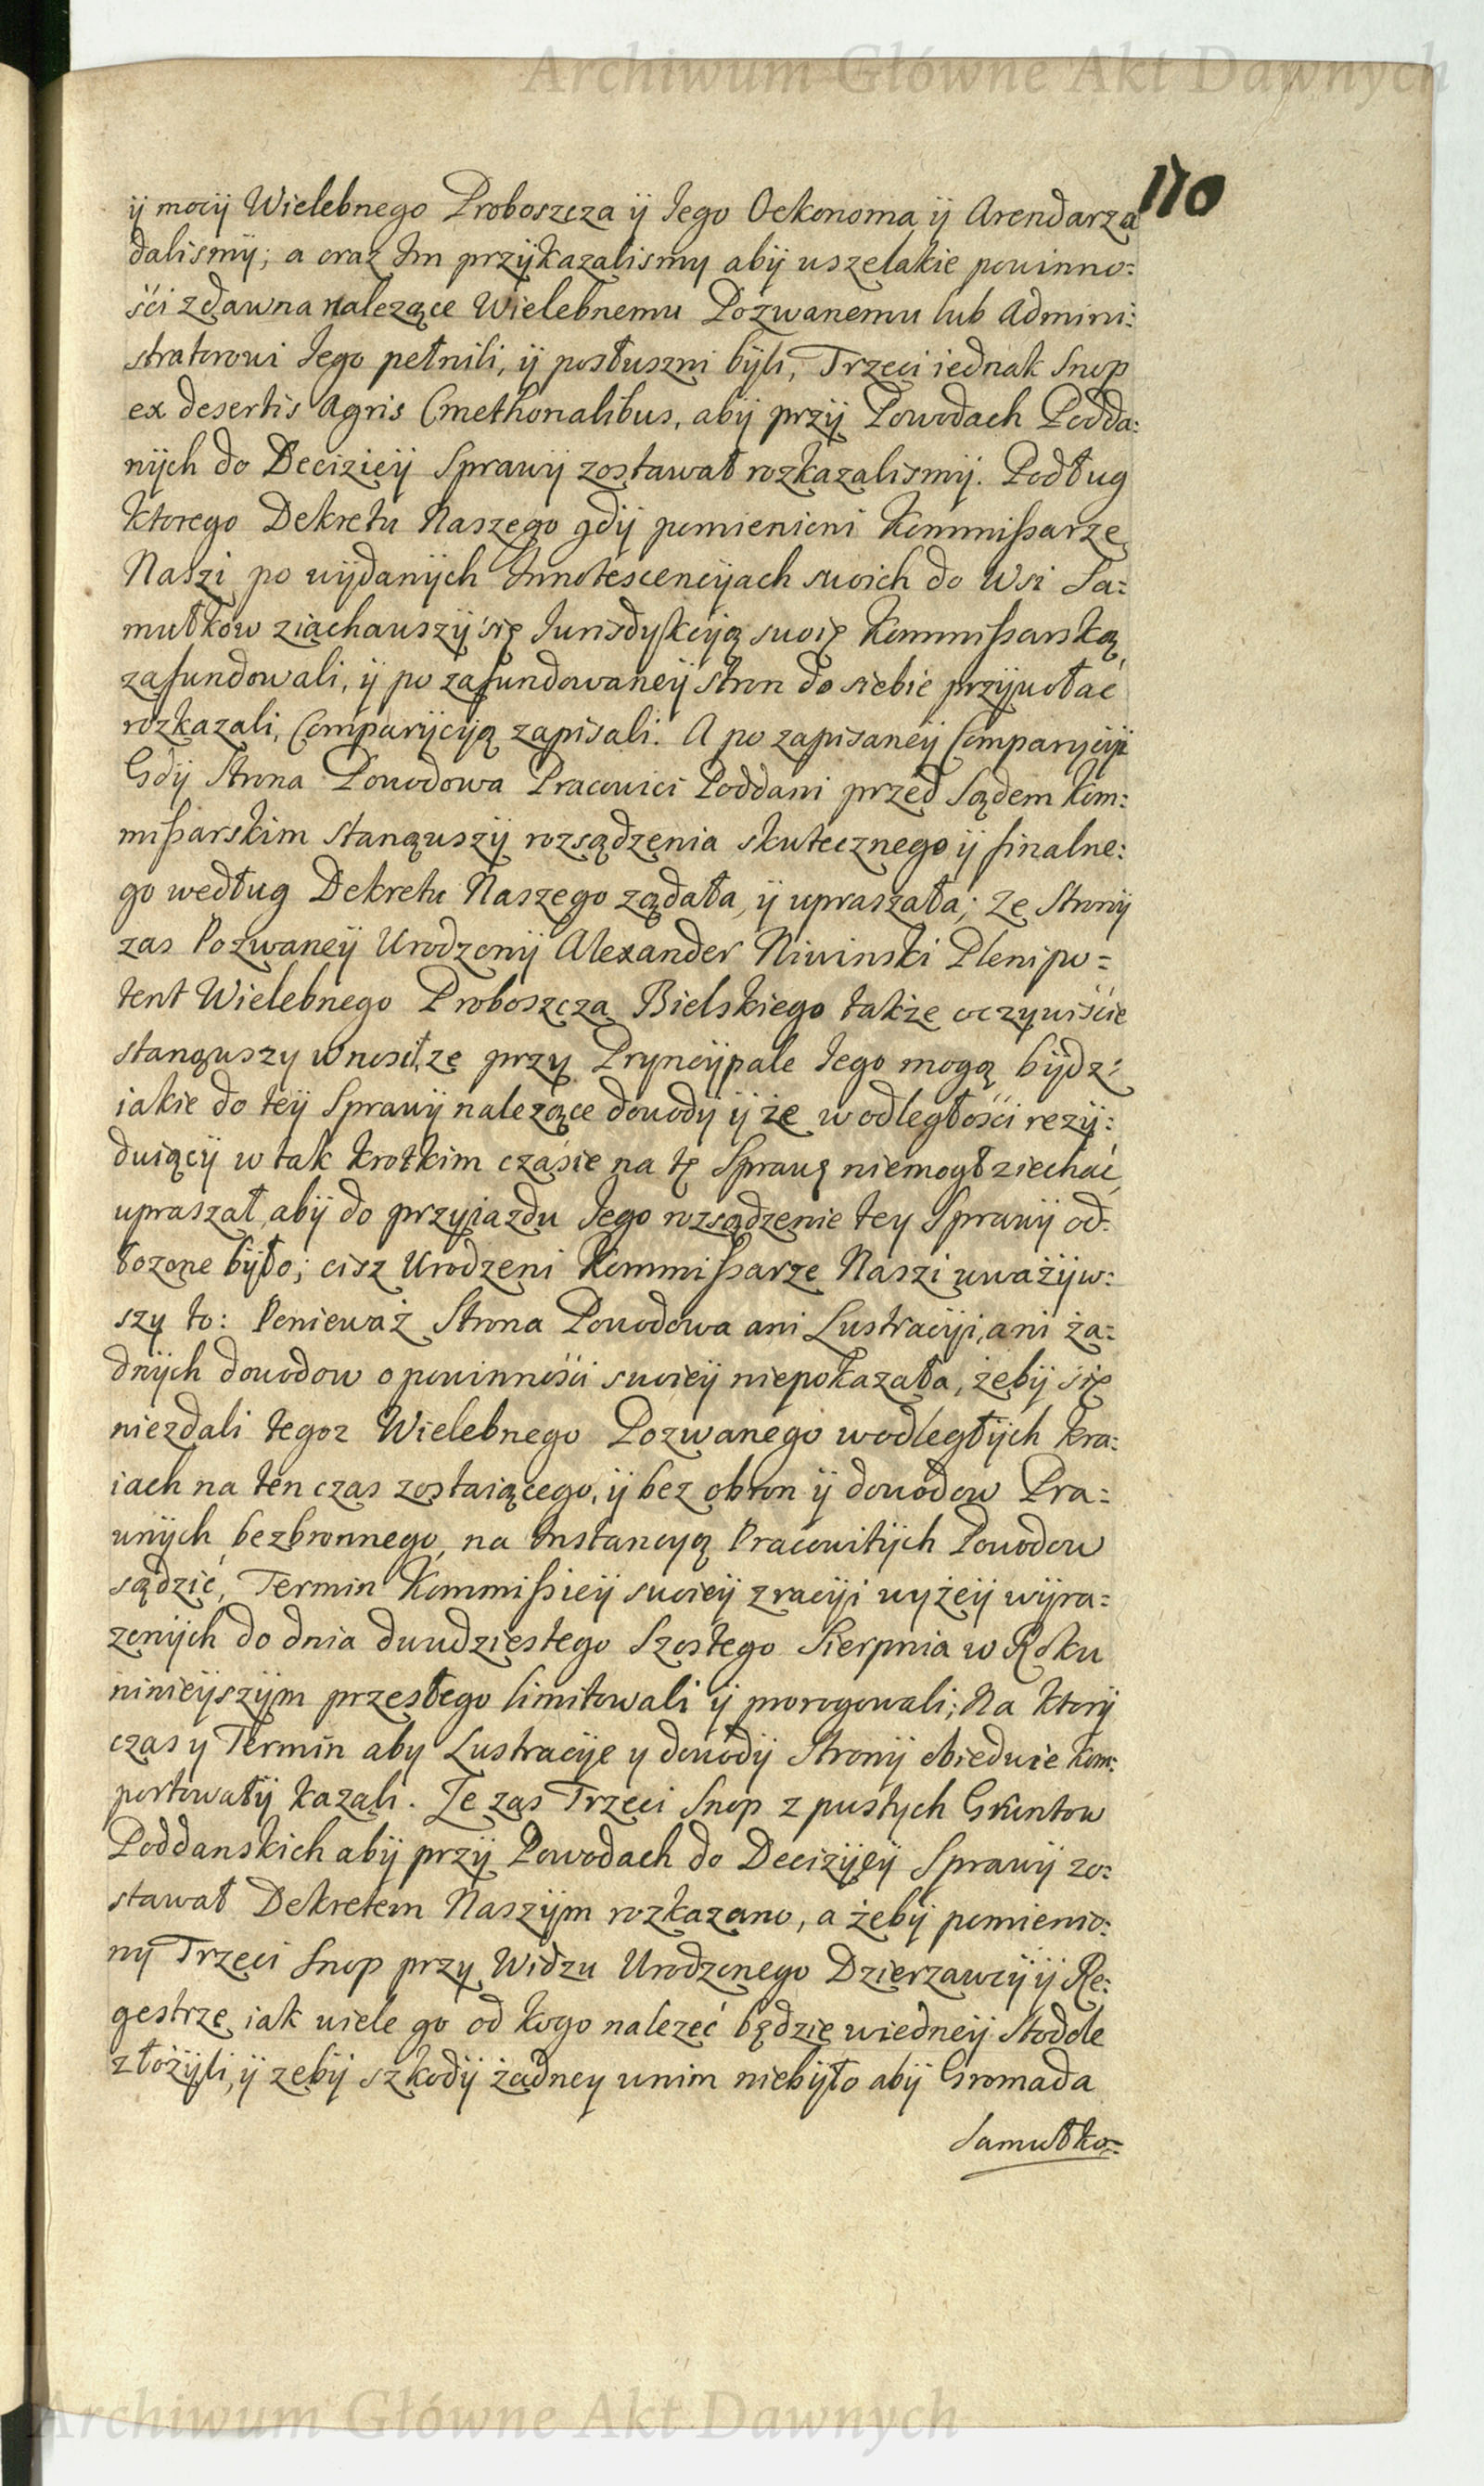 Archiwum Główne Akt Dawnych
170
ÿ mocÿ Wielebnego Proboszcza ÿ Jego Oekonoma ÿ Arendarza
dalismÿ; a oraz Im przÿkazalismy abÿ wszelakie powinno:
ści zdawna nalezące Wielebnemu Pozwanemu lub Admini:
stratorowi Jego pełnili, ÿ posłuszni bÿli, Trzeci iednak Snop
ex desertis Agris Cmethonalibus, abÿ przÿ Powodach Podda:
nÿch do Deciziëÿ Sprawÿ zostawał rozkazalismÿ. Podług
ktorego Dekretu Naszego gdÿ pomienieni Kommißarze
Naszi po wÿdanÿch Innotescencÿach swoich do Wsi Sa:
mułkow ziachawszÿ się Jurisdykcÿą swoię Kommißarską
zafundowali, ÿ po zafundowaneÿ stron do siebie przÿwołać
rozkazali, Comparÿcÿą zapisali. A po zapisaneÿ Comparycÿi
Gdÿ Strona Powodowa Pracowici Poddani przed Sądem Kom:
mißarskim stanąwszÿ rozsądzenia skutecznego ÿ finalne:
go według Dekretu Naszego ządała, ÿ upraszała; Ze Stronÿ
zas Pozwaneÿ Urodzonÿ Alexander Niwinski Plenipo=
tent Wielebnego Proboszcza Bielskiego także oczywiście
stanąwszy wnosił, ze przy Pryncÿpale Jego mogą bÿdz
iakie do teÿ Sprawÿ nalezące dowodÿ ÿ że w odległości rezÿ:
duiącÿ w tak krotkim czasie na tę Sprawę niemogł ziechać,
upraszał, abÿ do przyiazdu Jego rozsądzenie tey Sprawÿ od:
łozone bÿło; cisz Urodzeni Kommißarze Naszi uważÿw:
szy to: Ponieważ Strona Powodowa ani Lustracÿi, ani ża:
dnÿch dowodow o powinności swoieÿ niepokazała, żebÿ się
niezdali tegoz Wielebnego Pozwanego w odległÿch kra:
iach na ten czas zostaiącego, ÿ bez obron ÿ dowodow Pra=
wnÿch, bezbronnego, na Instancyą Pracowitÿch Powodow
sądzić, Termin Kommißieÿ swoieÿ z racÿi wyżeÿ wÿra=
zonÿch do dnia dwudziestego Szostego Sierpnia w Roku
ninieÿszÿm przesłego limitowali ÿ prorogowali; Na ktorÿ
czas y Termin aby Lustracÿe y dowodÿ Stronÿ obiedwie kom:
portowałÿ kazali. Ze zas Trzeci Snop z pustych Gruntow
Poddanskich abÿ przÿ Powodach do Decizÿeÿ Sprawÿ zo:
stawał Dekretem Naszÿm rozkazano, a żebÿ pomienio:
ny Trzeci Snop przy Widzu Urodzonego Dzierzawcÿ ÿ Re:
gestrze iak wiele go od kogo nalezeć będzie w iedneÿ Stodole
złożÿli, ÿ zebÿ szkodÿ żadney w nim niebÿło abÿ Gromada
Samułko=
Archiwum Główne Akt Dawnych